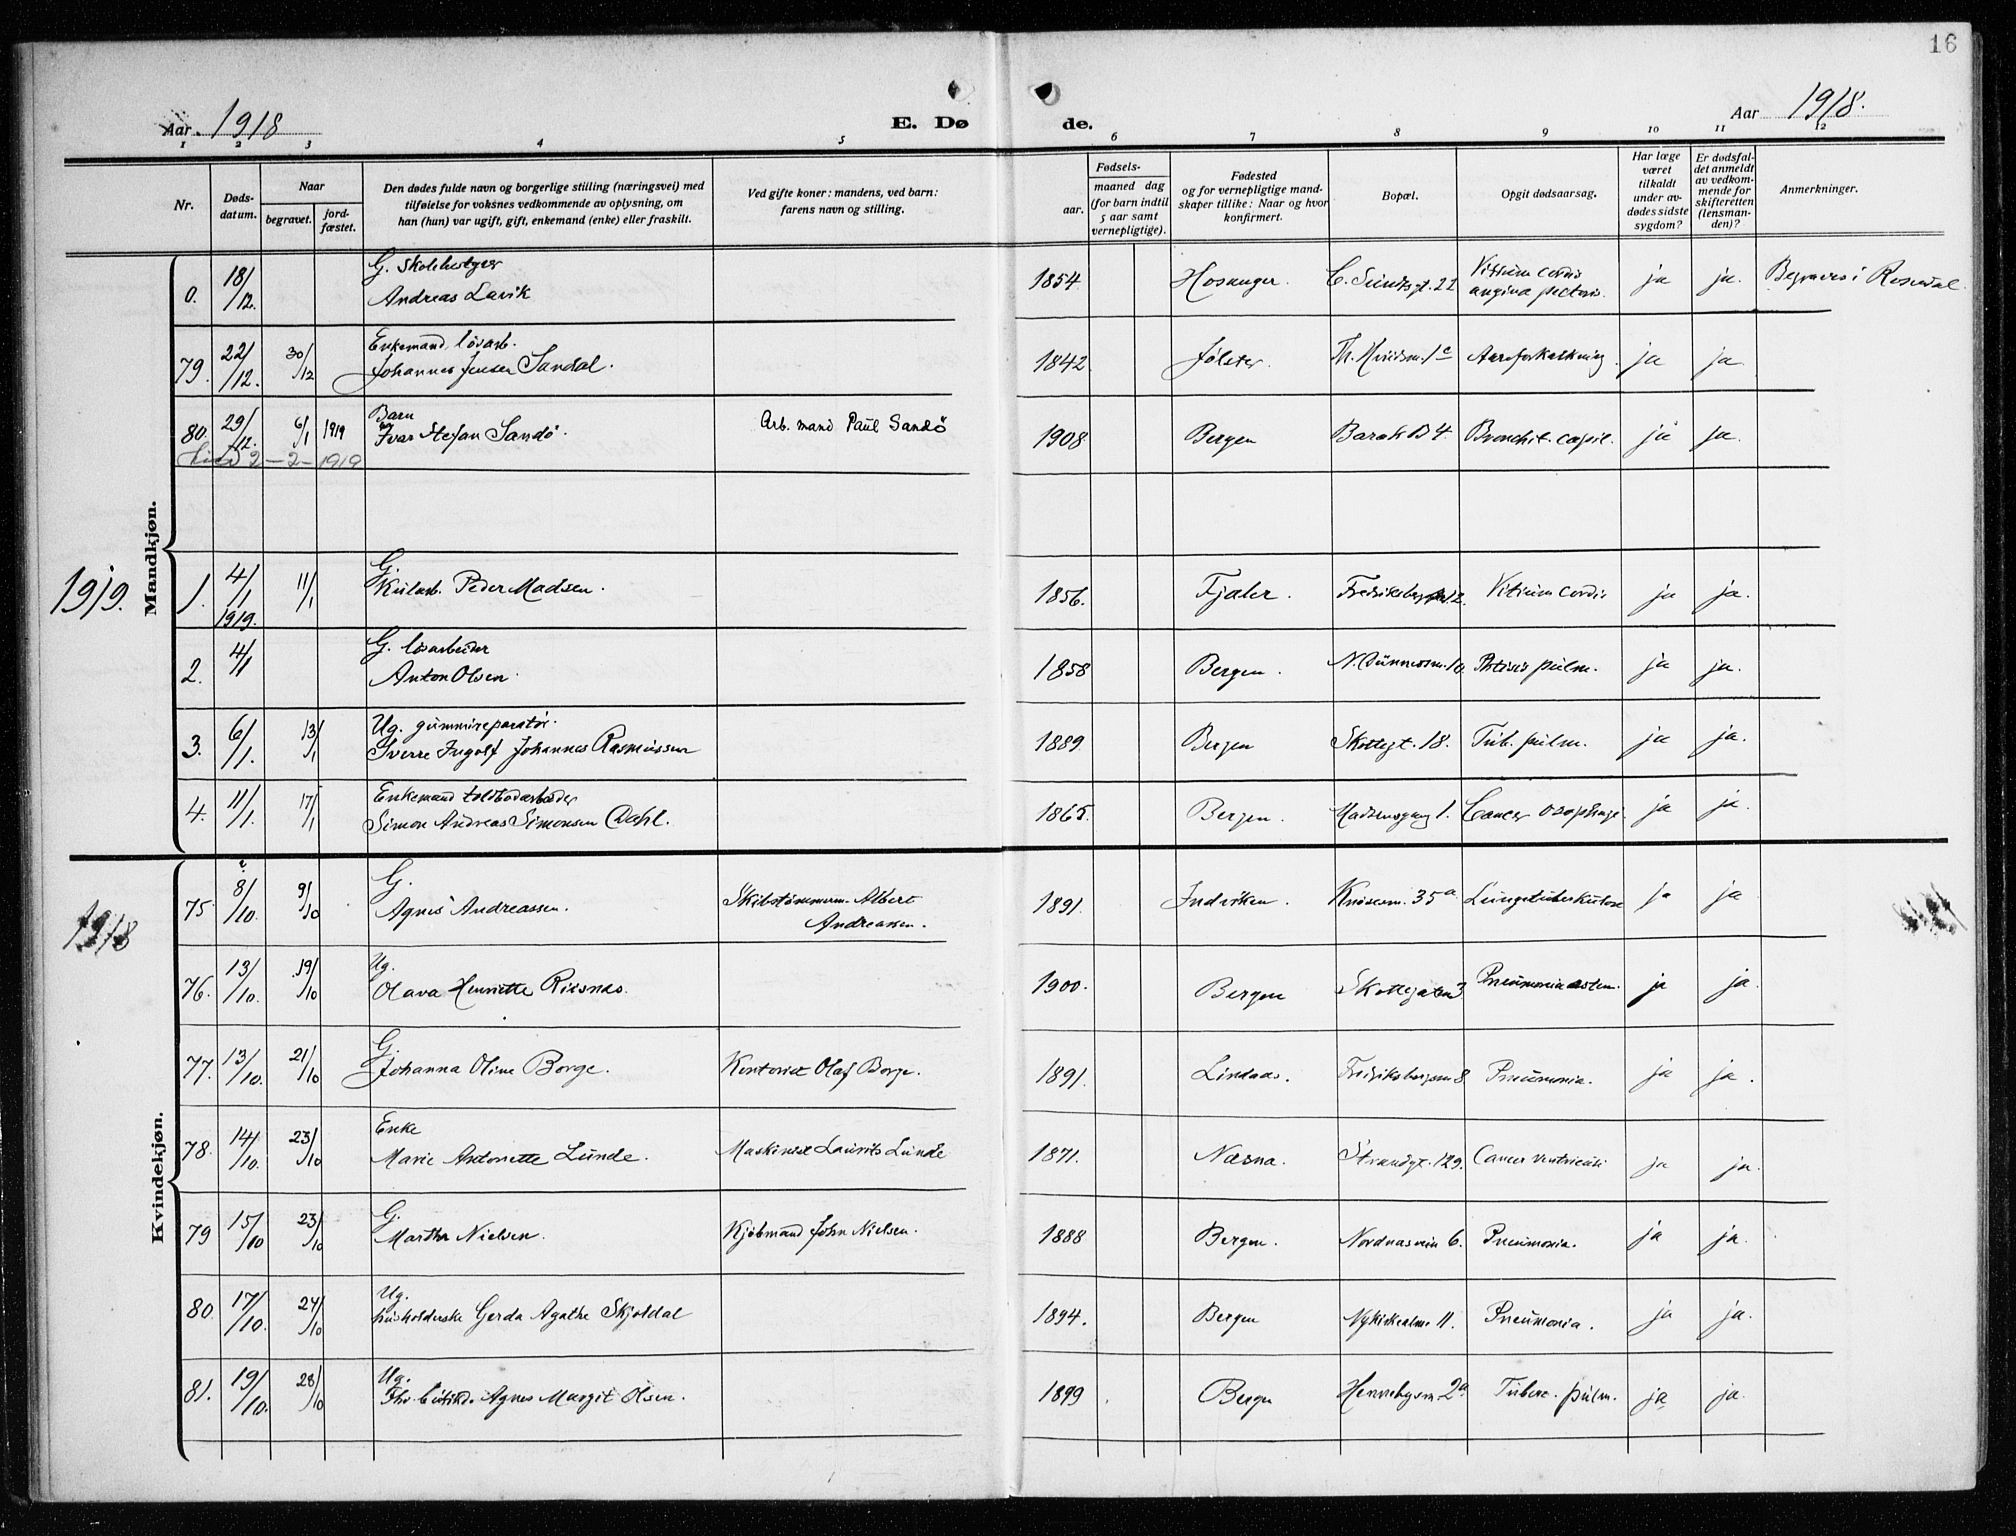 16
Aar 1918
E. Dø de.
Aar 1918.
1 2 3 4 5 6 7 8 9 10 11 12
Nr.
Døds-
datum.
Naar
begravet.
jord-
fæstet.
Den dødes fulde navn og borgerlige stilling (næringsvei) med
tilføielse for voksnes vedkommende av oplysning, om
han (hun) var ugift, gift, enkemand (enke) eller fraskilt.
Ved gifte koner: mandens, ved barn:
farens navn og stilling.
Fødsels-
aar.
maaned dag
(for barn indtil
5 aar samt
vernepligtige).
Fødested
og for vernepligtige mand-
skaper tillike: Naar og hvor
konfirmert.
Bopæl.
Opgit dødsaarsag.
Har læge
været
tilkaldt
under av-
dødes sidste
sygdom?
Er dødsfal-
det anmeldt
av vedkom-
mende for
skifteretten
(lensman-
den)?
Anmerkninger.
Mandkjøn.
0. 18/12. G. Skolebestyrer
Andreas Lavik 1854 Hosanger. C. Sundtsgt. 22 Vitium cordis
angina pectoris. ja ja. Begraves i Rosendal.
79. 22/12. 30/12 Enkemand, løsarb.
Johannes Jensen Sandal. 1842 Jølster. Th. Hvidsm. 1c Aareforkalkning. ja ja.
80. 29/12. 6/1 1919 Barn
Ivar Stefan Sandö. Arb. mand Paul Sandö 1908 Bergen Barak B 4. Bronchit. capil. ja ja.
2-2-1919
1919.
1. 4/1 1919. 11/1 G.
Kularb. Peder Madsen. 1856. Fjaler. Fredriksberg 12. Vitium cordis ja ja.
2. 4/1 G. løsarbeider
Anton Olsen. 1858 Bergen. 10 Phtisis pulm. ja ja.
3. 6/1. 13/1 Ug. gummireparatør.
Sverre Ingolf Johannes Rasmussen 1889. Bergen Skottegt. 18. Tub. pulm. ja ja.
4. 11/1. 17/1 Enkemand toldbodarbeider
Simon Andreas Simonsen Dahl. 1865. Bergen. Madsensgang 1. Cancer ja ja.
Kvindekjøn.
1918
75 8/10. 9/10 G.
Agnes Andreassen. Skibstømmerm. Albert
Andreassen. 1891. Indviken. Knøsesm. 35a Lungetuberkulose ja ja
76. 13/10. 19/10 Ug.
Olava Henriette Riisnes. 1900. Bergen Skottegaten 3 Pneumonia ja ja.
77. 13/10. 21/10 G.
Johanna Oline Borge. Kontorist Olaf Borge. 1891. Lindaas. Fredriksbergsm 8. Pneumonia. ja ja.
78. 14/10. 23/10 Enke
Marie Antonette Lunde. Maskinist Laurits Lunde 1871. Næsna. Strandgt. 129. Cancer ventriculi ja ja.
79 15/10 23/10 G.
Martha Nielsen. Kjøbmand John Nielsen. 1888 Bergen. Nordnæsvein 6. Pneumonia. ja ja.
80. 17/10. 24/10 Ug.
husholderske Gerda Agathe Skjoldal 1894. Bergen Nykirkealm. 11. Pneumonia. ja ja.
81. 19/10. 28/10 Ug.
Agnes Margit Olsen. 1899 Bergen Hennebysm 2a Tuberc. pulm. ja ja.